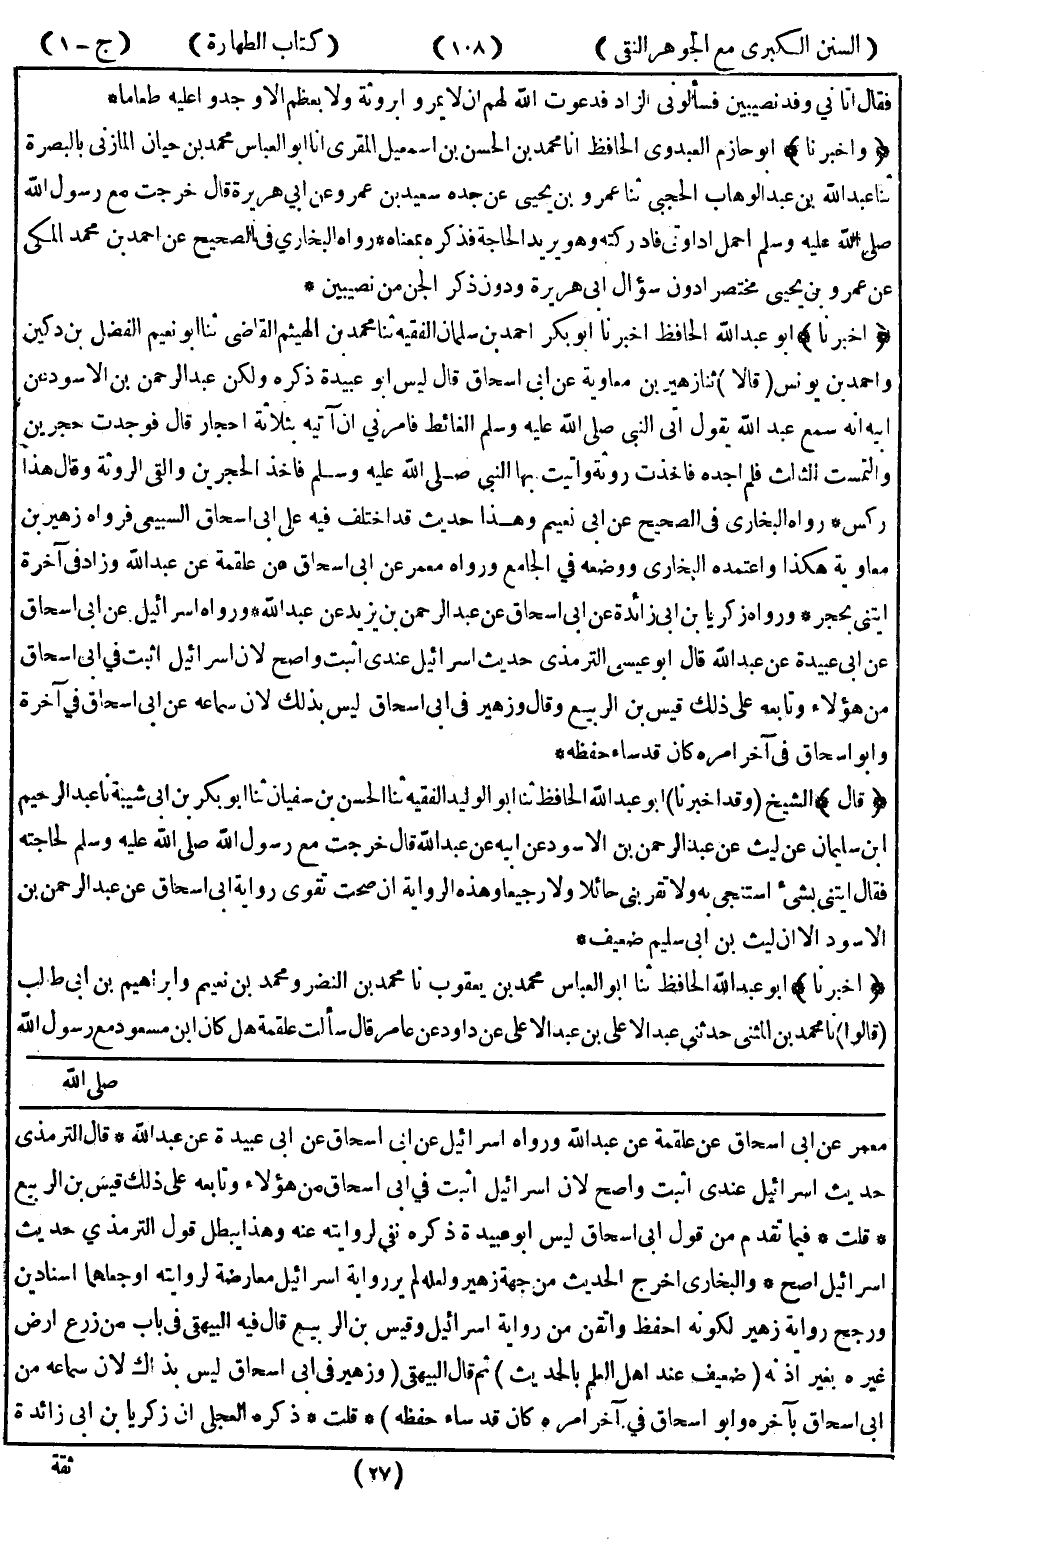 ( السنن الكبرى مع الجوهر النقى ) (١٠٨) ( كتاب الطهارة ) ( ج - ١ )
فقال اتاني وفد نصيبين فسألونى الزاد فدعوت الله لهم ان لا يمروا بروثة ولا بعظم الا وجدوا عليه طعاما *
﴿ واخبرنا ﴾ ابو حازم العبدوى الحافظ انا محمد بن الحسن بن اسمعيل المقرى انا ابو العباس محمد بن حيان المازنى بالبصرة
ثنا عبد الله بن عبد الوهاب الحجبي ثنا عمرو بن يحيى عن جده سعيد بن عمرو عن ابي هريرة قال خرجت مع رسول الله
صلى الله عليه وسلم احمل اداوتى فادركته وهو يريد الحاجة فذكره بمعناه * رواه البخاري فى الصحيح عن احمد بن محمد المكى
عن عمرو بن يحيى مختصرا دون سؤال ابى هريرة ودون ذكر الجن من نصيبين *
﴿ اخبرنا ﴾ ابو عبد الله الحافظ اخبرنا ابو بكر احمد بن سلمان الفقيه ثنا محمد بن الهيثم القاضى ثنا ابو نعيم الفضل بن دكين
واحمد بن يونس ( قالا ) ثنا زهير بن معاوية عن ابى اسحاق قال ليس ابو عبيدة ذكره ولكن عبد الرحمن بن الاسود عن
ابيه انه سمع عبد الله يقول اتى النبى صلى الله عليه وسلم الغائط فامرني ان آتيه بثلاثة احجار قال فوجدت حجرين
والتمست الثالث فلم اجده فاخذت روثة واتيت بها النبي صلى الله عليه وسلم فاخذ الحجرين والقى الروثة وقال هذا
ركس * رواه البخارى فى الصحيح عن ابى نعيم وهذا حديث قد اختلف فيه على ابى اسحاق السبيعى فرواه زهير بن
معاوية هكذا واعتمده البخارى ووضعه في الجامع ورواه معمر عن ابى اسحاق عن علقمة عن عبد الله وزاد فى آخره
ايتنى بحجر * ورواه زكريا بن ابى زائدة عن ابى اسحاق عن عبد الرحمن بن يزيد عن عبد الله * ورواه اسرائيل عن ابى اسحاق
عن ابى عبيدة عن عبد الله قال ابو عيسى الترمذى حديث اسرائيل عندى اثبت واصح لان اسرائيل اثبت في ابى اسحاق
من هؤلاء وتابعه على ذلك قيس بن الربيع وقال وزهير فى ابى اسحاق ليس بذلك لان سماعه عن ابى اسحاق في آخرة
وابو اسحاق فى آخر امره كان قد ساء حفظه *
﴿ قال ﴾ الشيخ ( وقد اخبرنا ) ابو عبد الله الحافظ ثنا ابو الوليد الفقيه ثنا الحسن بن سفيان ثنا ابو بكر بن ابى شيبة نا عبد الرحيم
ابن سليمان عن ليث عن عبد الرحمن بن الاسود عن ابيه عن عبد الله قال خرجت مع رسول الله صلى الله عليه وسلم لحاجته
فقال ايتنى بشىء استنجى به ولا تقربنى حائلا ولا رجيعا وهذه الرواية ان صحت تقوى رواية ابى اسحاق عن عبد الرحمن بن
الاسود الا ان ليث بن ابى سليم ضعيف *
﴿ اخبرنا ﴾ ابو عبد الله الحافظ ثنا ابو العباس محمد بن يعقوب نا محمد بن النضر ومحمد بن نعيم وابراهيم بن ابى طالب
( قالوا ) نا محمد بن المثنى حدثني عبد الاعلى بن عبد الاعلى عن داود عن عامر قال سألت علقمة هل كان ابن مسعود مع رسول الله
صلى الله
معمر عن ابى اسحاق عن علقمة عن عبد الله ورواه اسرائيل عن ابى اسحاق عن ابى عبيدة عن عبد الله * قال الترمذى
حديث اسرائيل عندى اثبت واصح لان اسرائيل اثبت في ابى اسحاق من هؤلاء وتابعه على ذلك قيس بن الربيع
* قلت * فيما تقدم من قول ابى اسحاق ليس ابو عبيدة ذكره نفي لروايته عنه وهذا يبطل قول الترمذي حديث
اسرائيل اصح * والبخارى اخرج الحديث من جهة زهير ولعله لم ير رواية اسرائيل معارضة لروايته او جعلها اسنادين
ورجح رواية زهير لكونه احفظ واتقن من رواية اسرائيل وقيس بن الربيع قال فيه البيهقى فى باب من زرع ارض
غيره بغير اذنه ( ضعيف عند اهل العلم بالحديث ) ثم قال البيهقى ( وزهير فى ابى اسحاق ليس بذاك لان سماعه من
ابى اسحاق بآخره وابو اسحاق في آخر امره كان قد ساء حفظه ) * قلت * ذكره العجلى ان زكريا بن ابى زائدة
(٢٧) ثقة